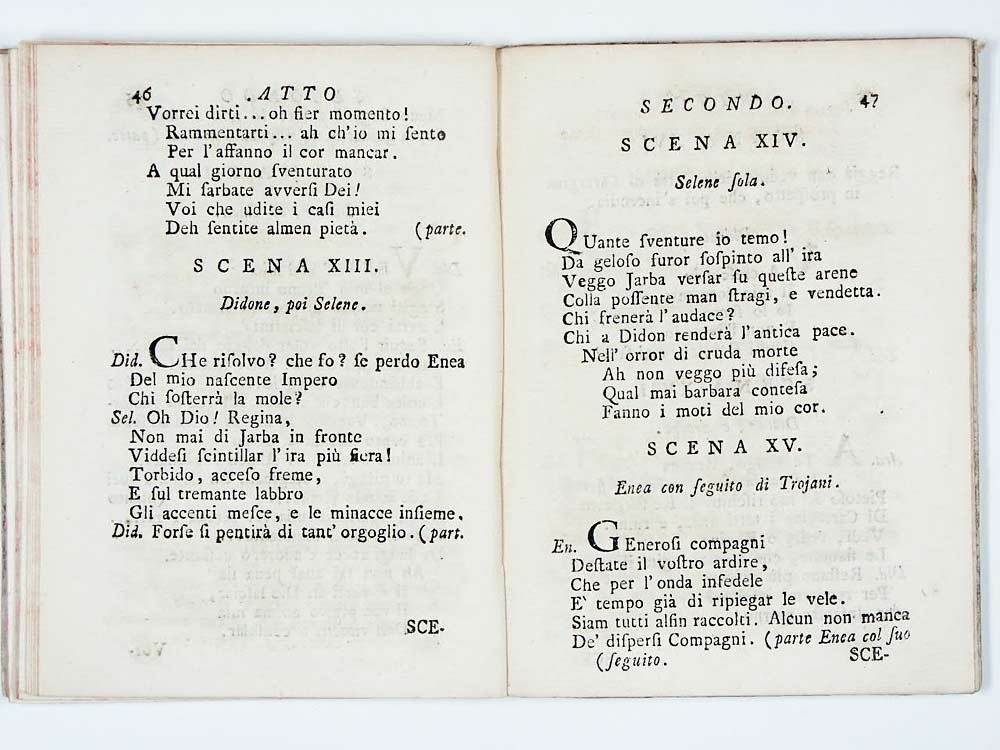 46 .ATTO
Vorrei dirti... oh fier momento!
Rammentarti... ah ch'io mi ſento
Per l'affanno il cor mancar.
A qual giorno ſventurato
Mi ſarbate avverſi Dei!
Voi che udite i caſi miei
Deh ſentite almen pietà. (parte.
SCENA XIII.
Didone, poi Selene.
Did. CHe riſolvo? che fo? ſe perdo Enea
Del mio naſcente Impero
Chi ſoſterrà la mole?
Sel. Oh Dio! Regina,
Non mai di Jarba in fronte
Viddeſi ſcintillar l'ira più fiera!
Torbido, acceſo freme,
E ſul tremante labbro
Gli accenti meſce, e le minacce inſieme.
Did. Forſe ſi pentirà di tant' orgoglio. (part.
SCE-
SECONDO. 47
SCENA XIV.
Selene ſola.
QUante ſventure io temo!
Da geloſo furor ſoſpinto all' ira
Veggo Jarba verſar ſu queſte arene
Colla poſſente man ſtragi, e vendetta.
Chi frenerà l'audace?
Chi a Didon renderà l'antica pace.
Nell' orror di cruda morte
Ah non veggo più difeſa;
Qual mai barbara conteſa
Fanno i moti del mio cor.
SCENA XV.
Enea con ſeguito di Trojani.
En. GEneroſi compagni
Deſtate il voſtro ardire,
Che per l'onda infedele
E' tempo già di ripiegar le vele.
Siam tutti alfin raccolti. Alcun non manca
De' diſperſi Compagni. (parte Enea col ſuo
(ſeguito. SCE-